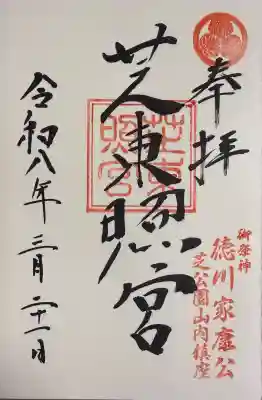 奉拝
芝東照宮
芝東照宮
令和八年三月二十一日
御祭神
徳川家康公
芝公園山内鎮座